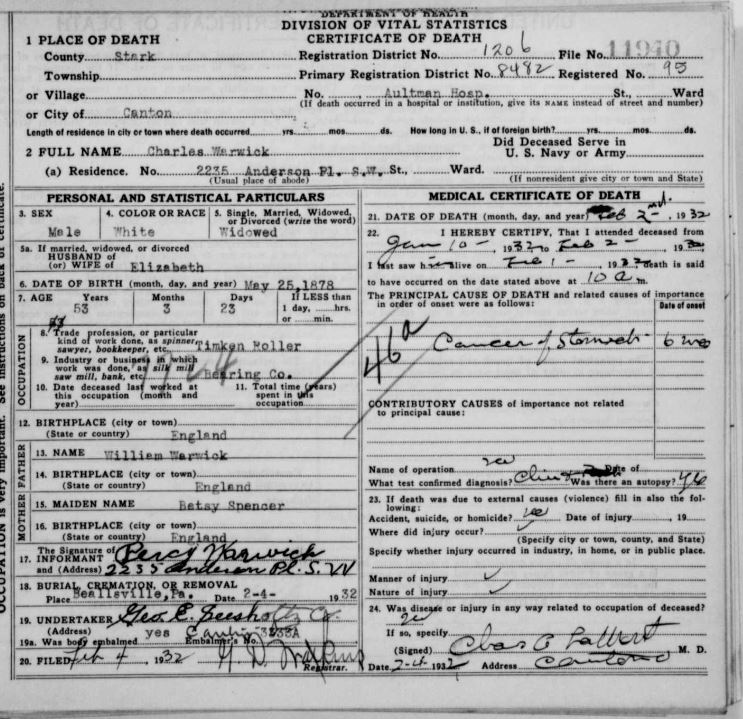 DEPARTMENT OF HEALTH
DIVISION OF VITAL STATISTICS
CERTIFICATE OF DEATH
1 PLACE OF DEATH
County Stark Registration District No. 1206 File No. 11940
Township Primary Registration District No. 8482 Registered No. 95
or Village No. Aultman Hosp. St., Ward
(If death occurred in a hospital or institution, give its NAME instead of street and number)
or City of Canton
Length of residence in city or town where death occurred yrs. mos. ds. How long in U. S., if of foreign birth? yrs. mos. ds.
2 FULL NAME Charles Warwick Did Deceased Serve in U. S. Navy or Army
(a) Residence. No. 2235 Anderson Pl. S.W. St., Ward.
(Usual place of abode) (If nonresident give city or town and State)
PERSONAL AND STATISTICAL PARTICULARS
3. SEX Male
4. COLOR OR RACE White
5. Single, Married, Widowed, or Divorced (write the word) Widowed
5a. If married, widowed, or divorced
HUSBAND of
(or) WIFE of Elizabeth
6. DATE OF BIRTH (month, day, and year) May 25, 1878
7. AGE Years Months Days If LESS than
53 3 23 1 day, hrs.
or min.
OCCUPATION
8. Trade, profession, or particular
kind of work done, as spinner,
sawyer, bookkeeper, etc. Timken Roller
9. Industry or business in which
work was done, as silk mill
saw mill, bank, etc. Bearing Co.
10. Date deceased last worked at
this occupation (month and
year)
11. Total time (years)
spent in this
occupation
12. BIRTHPLACE (city or town)
(State or country) England
FATHER
13. NAME William Warwick
14. BIRTHPLACE (city or town)
(State or country) England
MOTHER
15. MAIDEN NAME Betsy Spencer
16. BIRTHPLACE (city or town)
(State or country) England
The Signature of
17. INFORMANT Percy Warwick
and (Address) 2235 Anderson Pl. S.W
18. BURIAL, CREMATION, OR REMOVAL
Place Beallsville, Pa. Date 2-4- 1932
19. UNDERTAKER Geo. E. Co.
(Address) Canton
19a. Was body embalmed yes Embalmer's No. 3233A
20. FILED Feb 4, 1932 Registrar.
MEDICAL CERTIFICATE OF DEATH
21. DATE OF DEATH (month, day, and year) Feb 2 -, 1932
22. I HEREBY CERTIFY, That I attended deceased from
Jan 10 - 1932 to Feb 2 - 1932
I last saw him alive on Feb 1 - 1932 death is said
to have occurred on the date stated above at 10 a m.
The PRINCIPAL CAUSE OF DEATH and related causes of importance
in order of onset were as follows: Date of onset
46a Cancer of Stomach 6 mo
CONTRIBUTORY CAUSES of importance not related
to principal cause:
Name of operation no Date of
What test confirmed diagnosis? Was there an autopsy? no
23. If death was due to external causes (violence) fill in also the following:
Accident, suicide, or homicide? no Date of injury , 19
Where did injury occur?
(Specify city or town, county, and State)
Specify whether injury occurred in industry, in home, or in public place.
Manner of injury
Nature of injury
24. Was disease or injury in any way related to occupation of deceased?
no
If so, specify
(Signed) Chas M. D.
Date 2-4 1932 Address Canton O
OCCUPATION is very important. See instructions on back of certificate.